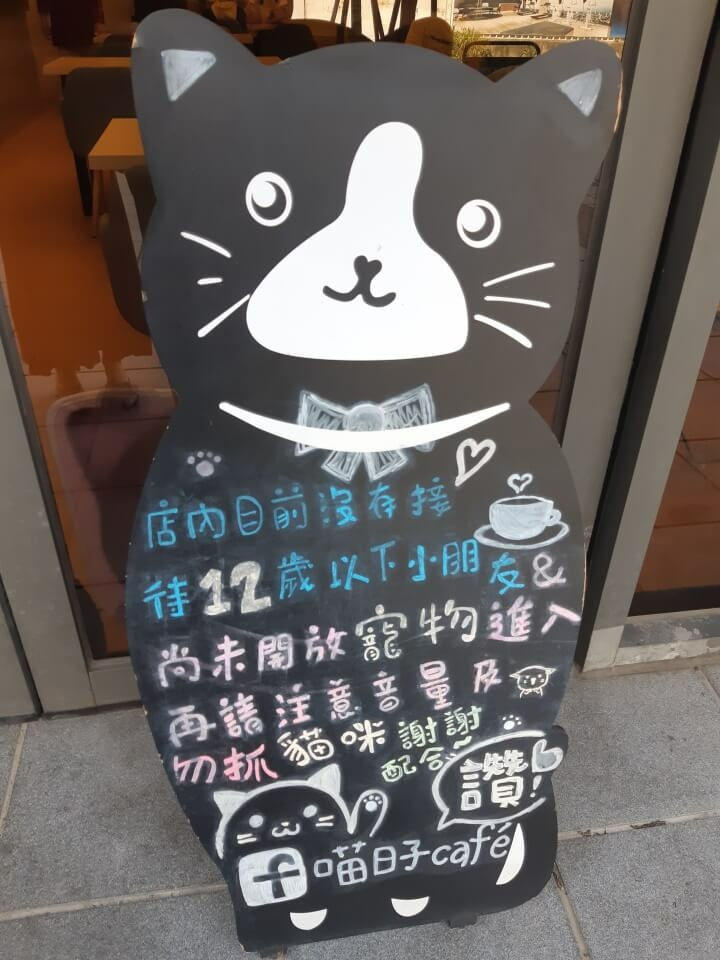 店內目前沒有接
待12歲以下小朋友&
尚未開放寵物進入
再請注意音量及
勿抓貓咪謝謝
配合~
讚!
f 喵日子café